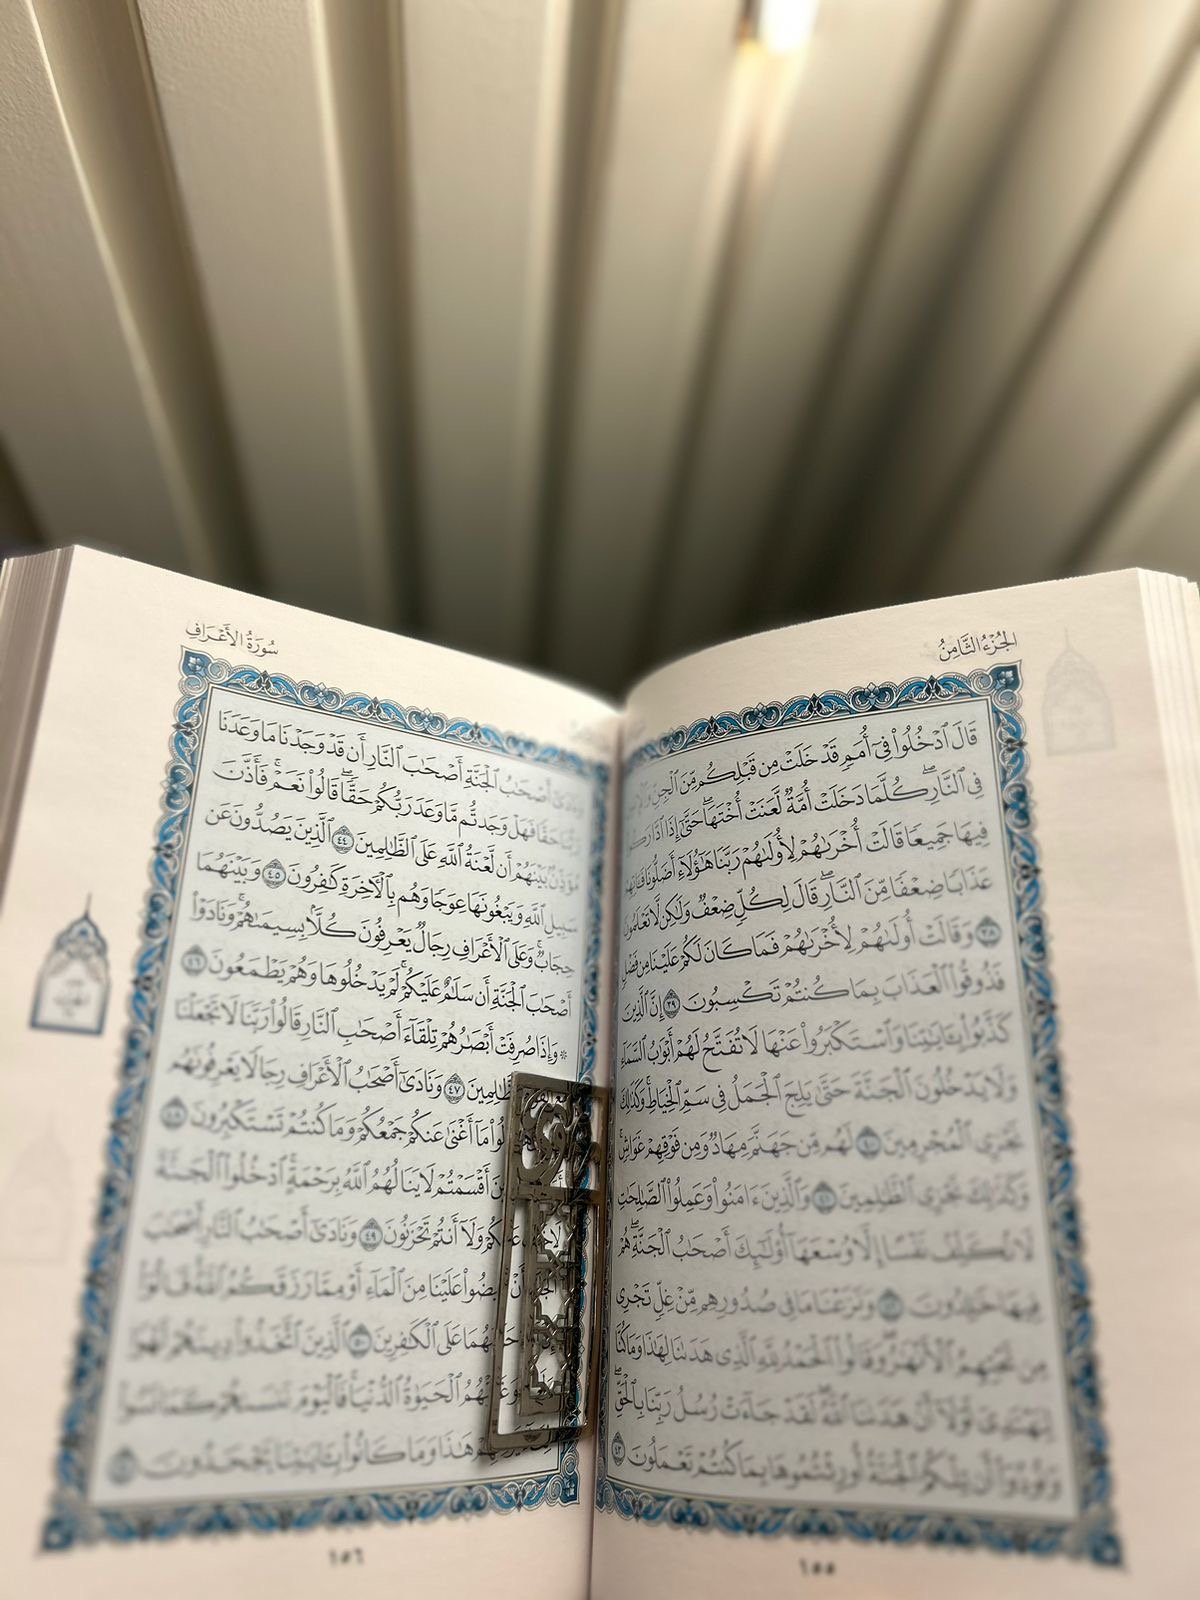 الجُزْءُ الثَّامِنُ
قَالَ ٱدْخُلُوا۟ فِىٓ أُمَمٍ قَدْ خَلَتْ مِن قَبْلِكُم مِّنَ ٱلْجِنِّ وَٱلْإِنسِ
فِى ٱلنَّارِ ۖ كُلَّمَا دَخَلَتْ أُمَّةٌ لَّعَنَتْ أُخْتَهَا ۖ حَتَّىٰٓ إِذَا ٱدَّارَكُوا۟
فِيهَا جَمِيعًا قَالَتْ أُخْرَىٰهُمْ لِأُولَىٰهُمْ رَبَّنَا هَـٰٓؤُلَآءِ أَضَلُّونَا فَـَٔاتِهِمْ
عَذَابًا ضِعْفًا مِّنَ ٱلنَّارِ ۖ قَالَ لِكُلٍّ ضِعْفٌ وَلَـٰكِن لَّا تَعْلَمُونَ
٣٨ وَقَالَتْ أُولَىٰهُمْ لِأُخْرَىٰهُمْ فَمَا كَانَ لَكُمْ عَلَيْنَا مِن فَضْلٍ
فَذُوقُوا۟ ٱلْعَذَابَ بِمَا كُنتُمْ تَكْسِبُونَ ٣٩ إِنَّ ٱلَّذِينَ
كَذَّبُوا۟ بِـَٔايَـٰتِنَا وَٱسْتَكْبَرُوا۟ عَنْهَا لَا تُفَتَّحُ لَهُمْ أَبْوَٰبُ ٱلسَّمَآءِ
وَلَا يَدْخُلُونَ ٱلْجَنَّةَ حَتَّىٰ يَلِجَ ٱلْجَمَلُ فِى سَمِّ ٱلْخِيَاطِ ۚ وَكَذَٰلِكَ
نَجْزِى ٱلْمُجْرِمِينَ ٤٠ لَهُم مِّن جَهَنَّمَ مِهَادٌ وَمِن فَوْقِهِمْ غَوَاشٍ ۚ
وَكَذَٰلِكَ نَجْزِى ٱلظَّـٰلِمِينَ ٤١ وَٱلَّذِينَ ءَامَنُوا۟ وَعَمِلُوا۟ ٱلصَّـٰلِحَـٰتِ
لَا نُكَلِّفُ نَفْسًا إِلَّا وُسْعَهَآ أُو۟لَـٰٓئِكَ أَصْحَـٰبُ ٱلْجَنَّةِ ۖ هُمْ
فِيهَا خَـٰلِدُونَ ٤٢ وَنَزَعْنَا مَا فِى صُدُورِهِم مِّنْ غِلٍّ تَجْرِى
مِن تَحْتِهِمُ ٱلْأَنْهَـٰرُ ۖ وَقَالُوا۟ ٱلْحَمْدُ لِلَّهِ ٱلَّذِى هَدَىٰنَا لِهَـٰذَا وَمَا كُنَّا
لِنَهْتَدِىَ لَوْلَآ أَنْ هَدَىٰنَا ٱللَّهُ ۖ لَقَدْ جَآءَتْ رُسُلُ رَبِّنَا بِٱلْحَقِّ ۖ
وَنُودُوٓا۟ أَن تِلْكُمُ ٱلْجَنَّةُ أُورِثْتُمُوهَا بِمَا كُنتُمْ تَعْمَلُونَ ٤٣
١٥٥
سُورَةُ الأَعْرَافِ
وَنَادَىٰٓ أَصْحَـٰبُ ٱلْجَنَّةِ أَصْحَـٰبَ ٱلنَّارِ أَن قَدْ وَجَدْنَا مَا وَعَدَنَا
رَبُّنَا حَقًّا فَهَلْ وَجَدتُّم مَّا وَعَدَ رَبُّكُمْ حَقًّا ۖ قَالُوا۟ نَعَمْ ۚ فَأَذَّنَ
مُؤَذِّنٌۢ بَيْنَهُمْ أَن لَّعْنَةُ ٱللَّهِ عَلَى ٱلظَّـٰلِمِينَ ٤٤ ٱلَّذِينَ يَصُدُّونَ عَن
سَبِيلِ ٱللَّهِ وَيَبْغُونَهَا عِوَجًا وَهُم بِٱلْـَٔاخِرَةِ كَـٰفِرُونَ ٤٥ وَبَيْنَهُمَا
حِجَابٌ ۚ وَعَلَى ٱلْأَعْرَافِ رِجَالٌ يَعْرِفُونَ كُلًّۢا بِسِيمَىٰهُمْ ۚ وَنَادَوْا۟
أَصْحَـٰبَ ٱلْجَنَّةِ أَن سَلَـٰمٌ عَلَيْكُمْ ۚ لَمْ يَدْخُلُوهَا وَهُمْ يَطْمَعُونَ ٤٦
۞ وَإِذَا صُرِفَتْ أَبْصَـٰرُهُمْ تِلْقَآءَ أَصْحَـٰبِ ٱلنَّارِ قَالُوا۟ رَبَّنَا لَا تَجْعَلْنَا
مَعَ ٱلْقَوْمِ ٱلظَّـٰلِمِينَ ٤٧ وَنَادَىٰٓ أَصْحَـٰبُ ٱلْأَعْرَافِ رِجَالًا يَعْرِفُونَهُم
قَالُوا۟ مَآ أَغْنَىٰ عَنكُمْ جَمْعُكُمْ وَمَا كُنتُمْ تَسْتَكْبِرُونَ ٤٨
أَقْسَمْتُمْ لَا يَنَالُهُمُ ٱللَّهُ بِرَحْمَةٍ ۚ ٱدْخُلُوا۟ ٱلْجَنَّةَ
لَا خَوْفٌ عَلَيْكُمْ وَلَآ أَنتُمْ تَحْزَنُونَ ٤٩ وَنَادَىٰٓ أَصْحَـٰبُ ٱلنَّارِ أَصْحَـٰبَ
ٱلْجَنَّةِ أَنْ أَفِيضُوا۟ عَلَيْنَا مِنَ ٱلْمَآءِ أَوْ مِمَّا رَزَقَكُمُ ٱللَّهُ ۚ قَالُوٓا۟
إِنَّ ٱللَّهَ حَرَّمَهُمَا عَلَى ٱلْكَـٰفِرِينَ ٥٠ ٱلَّذِينَ ٱتَّخَذُوا۟ دِينَهُمْ لَهْوًا
وَغَرَّتْهُمُ ٱلْحَيَوٰةُ ٱلدُّنْيَا ۚ فَٱلْيَوْمَ نَنسَىٰهُمْ كَمَا نَسُوا۟
يَوْمِهِمْ هَـٰذَا وَمَا كَانُوا۟ بِـَٔايَـٰتِنَا يَجْحَدُونَ ٥١
١٥٦